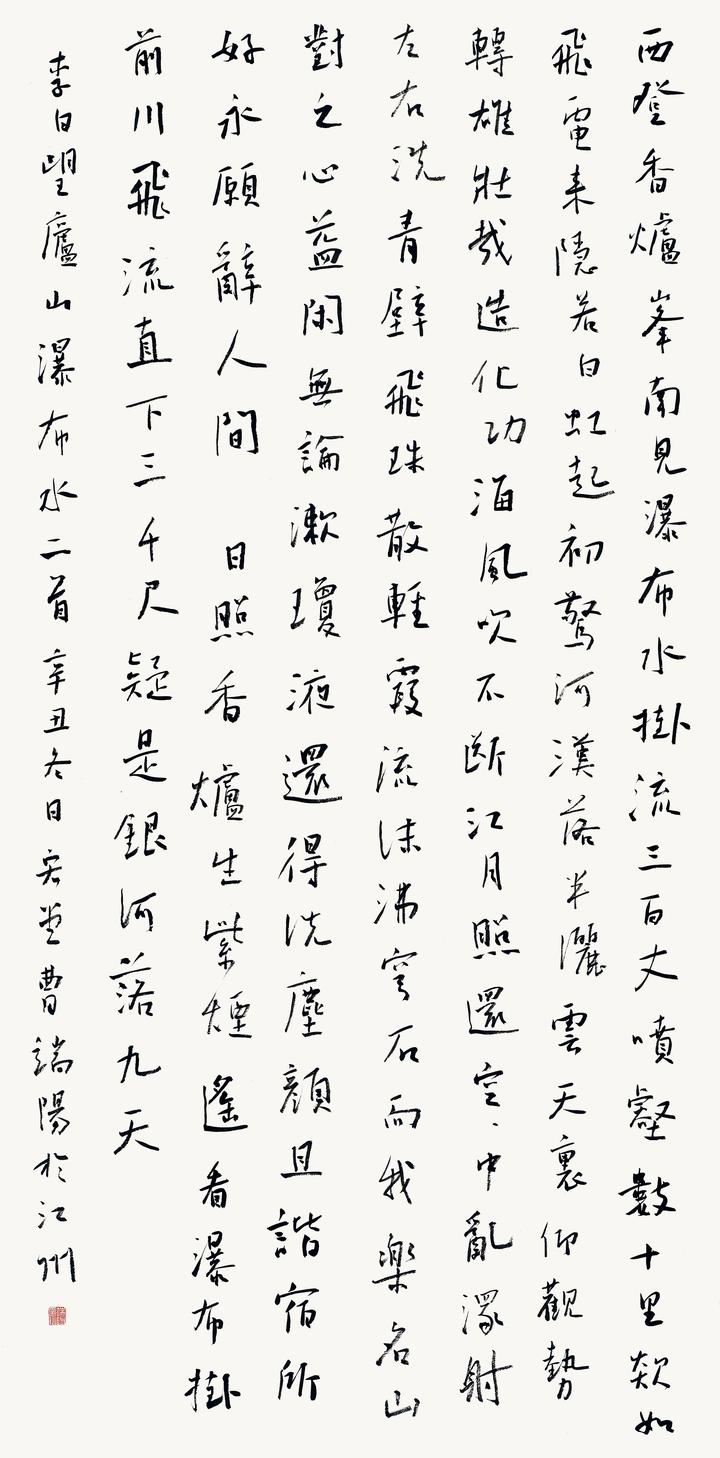 西登香爐峯南見瀑布水掛流三百丈噴壑數十里欻如
飛電来隱若白虹起初驚河漢落半灑雲天裏仰觀勢
轉雄壯哉造化功海風吹不断江月照還空、中亂潈射
左右洗青壁飛珠散輕霞流沫沸穹石而我樂名山
對之心益閑無論漱瓊液還得洗塵顔且諧宿所
好永願辭人間 日照香爐生紫煙遙看瀑布掛
前川飛流直下三千尺疑是銀河落九天
李白望廬山瀑布水二首辛丑冬日宏堂曹端陽於江州